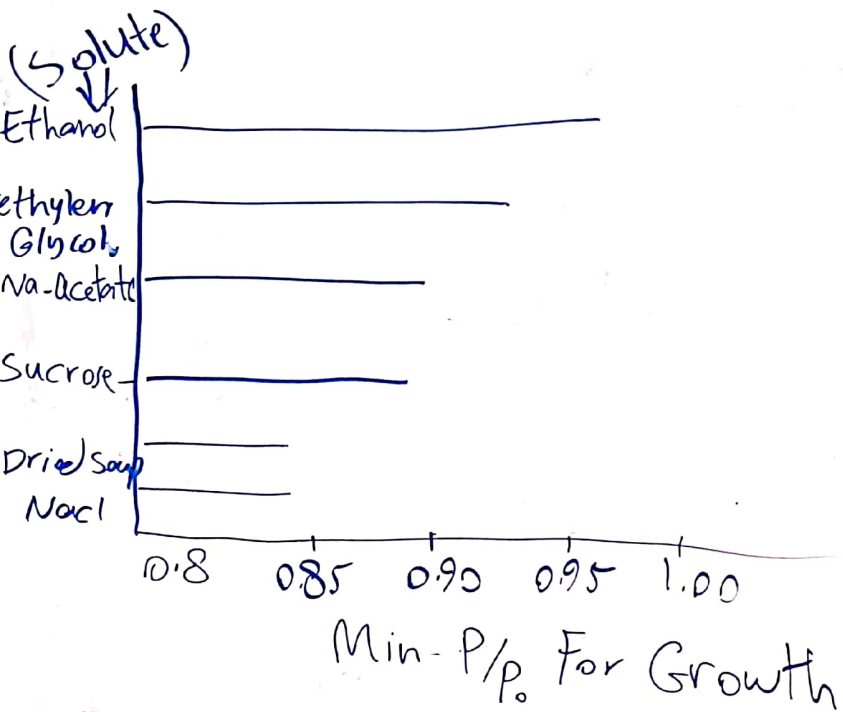 (Solute)
Ethanol
ethylen
Glycol
Na-Acetate
Sucrose
Dried Soup
Nacl
0.8 0.85 0.90 0.95 1.00
Min- P/P₀ For Growth